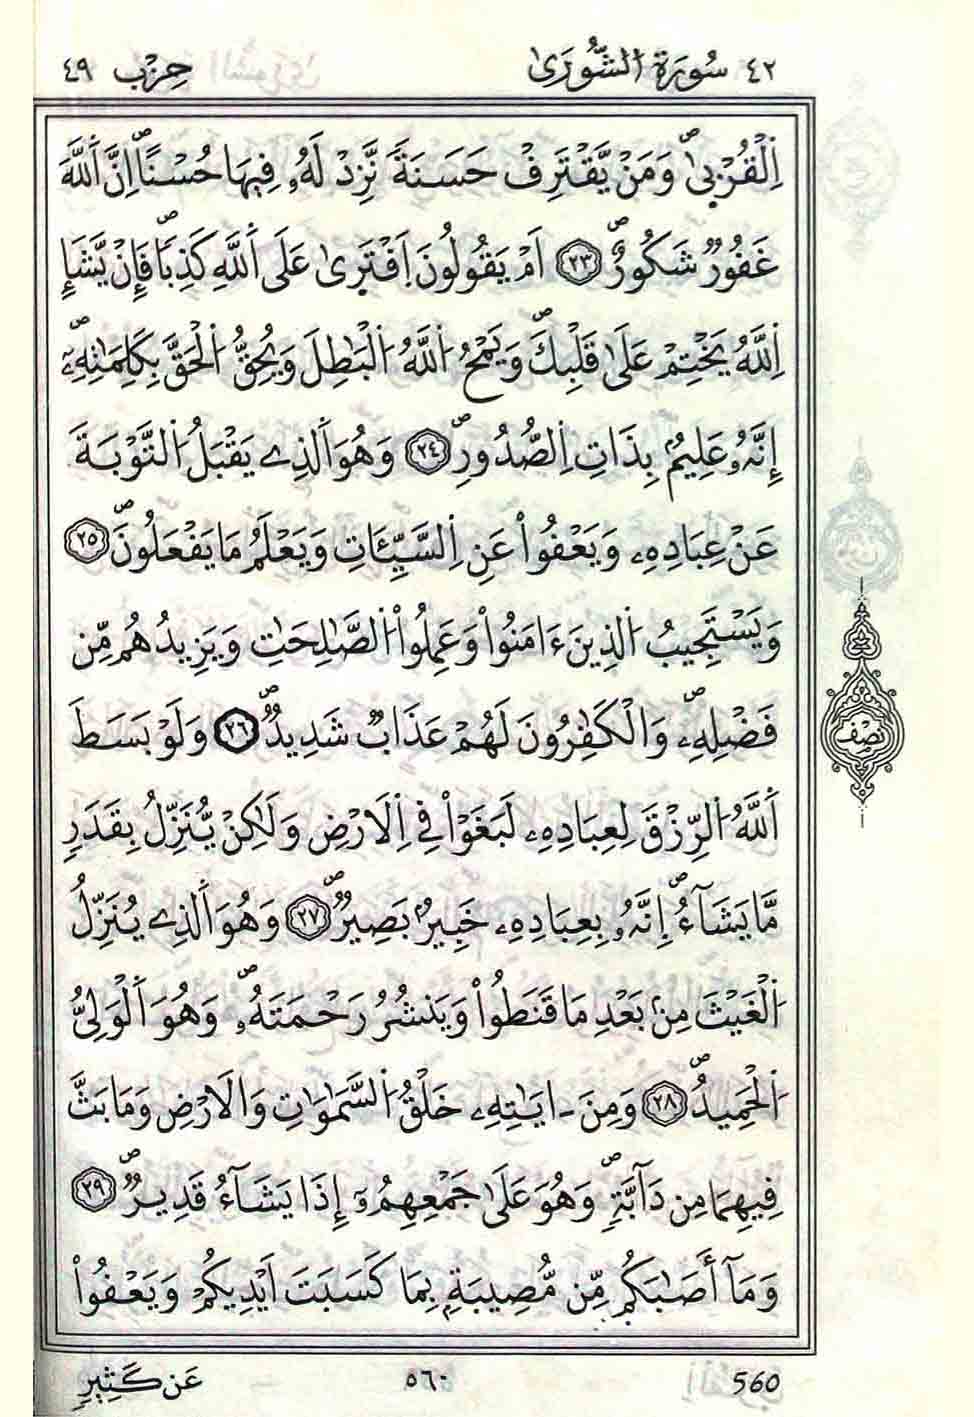 ٤٢ سُورَةُ الشُّورَىٰ حِزْب ٤٩
اِ۬لْقُرْبۭيٰۖ وَمَنْ يَّقْتَرِفْ حَسَنَةٗ نَّزِدْ لَهُۥ فِيهَا حُسْناًۖ اِنَّ اَ۬للَّهَ
غَفُورٞ شَكُورٌۖ ٢٣ اَمْ يَقُولُونَ اَ۪فْتَرۭيٰ عَلَي اَ۬للَّهِ كَذِباٗۖ فَإِنْ يَّشَإِ
اِ۬للَّهُ يَخْتِمْ عَلَيٰ قَلْبِكَۖ وَيَمْحُ اُ۬للَّهُ اُ۬لْبَٰطِلَ وَيُحِقُّ اُ۬لْحَقَّ بِكَلِمَٰتِهِۦٓۖ
إِنَّهُۥ عَلِيمُۢ بِذَاتِ اِ۬لصُّدُورِۖ ٢٤ وَهُوَ اَ۬لذِے يَقْبَلُ اُ۬لتَّوْبَةَ
عَنْ عِبَادِهِۦ وَيَعْفُواْ عَنِ اِ۬لسَّيِّـَٔاتِ وَيَعْلَمُ مَا يَفْعَلُونَۖ ٢٥
وَيَسْتَجِيبُ اُ۬لذِينَ ءَامَنُواْ وَعَمِلُواْ اُ۬لصَّٰلِحَٰتِ وَيَزِيدُهُم مِّن
فَضْلِهِۦۖ وَالْكَٰفِرُونَ لَهُمْ عَذَابٞ شَدِيدٞۖ ٢٦ وَلَوْ بَسَطَ
اَ۬للَّهُ اُ۬لرِّزْقَ لِعِبَادِهِۦ لَبَغَوْاْ فِے اِ۬لَارْضِ وَلَٰكِنْ يُّنَزِّلُ بِقَدَرٖ
مَّا يَشَآءُۖ اِنَّهُۥ بِعِبَادِهِۦ خَبِيرُۢ بَصِيرٞۖ ٢٧ وَهُوَ اَ۬لذِے يُنَزِّلُ
اُ۬لْغَيْثَ مِنۢ بَعْدِ مَا قَنَطُواْ وَيَنشُرُ رَحْمَتَهُۥۖ وَهُوَ اَ۬لْوَلِيُّ
اُ۬لْحَمِيدُۖ ٢٨ وَمِنَ ـ ايَٰتِهِۦ خَلْقُ اُ۬لسَّمَٰوَٰتِ وَالَارْضِ وَمَا بَثَّ
فِيهِمَا مِن دَآبَّةٖۖ وَهُوَ عَلَيٰ جَمْعِهِمُۥٓ إِذَا يَشَآءُ قَدِيرٞۖ ٢٩
وَمَآ أَصَٰبَكُم مِّن مُّصِيبَةِۢ بِمَا كَسَبَتَ اَيْدِيكُمْ وَيَعْفُواْ
نصف
عَن كَثِيرٖ ٥٦٠ 560